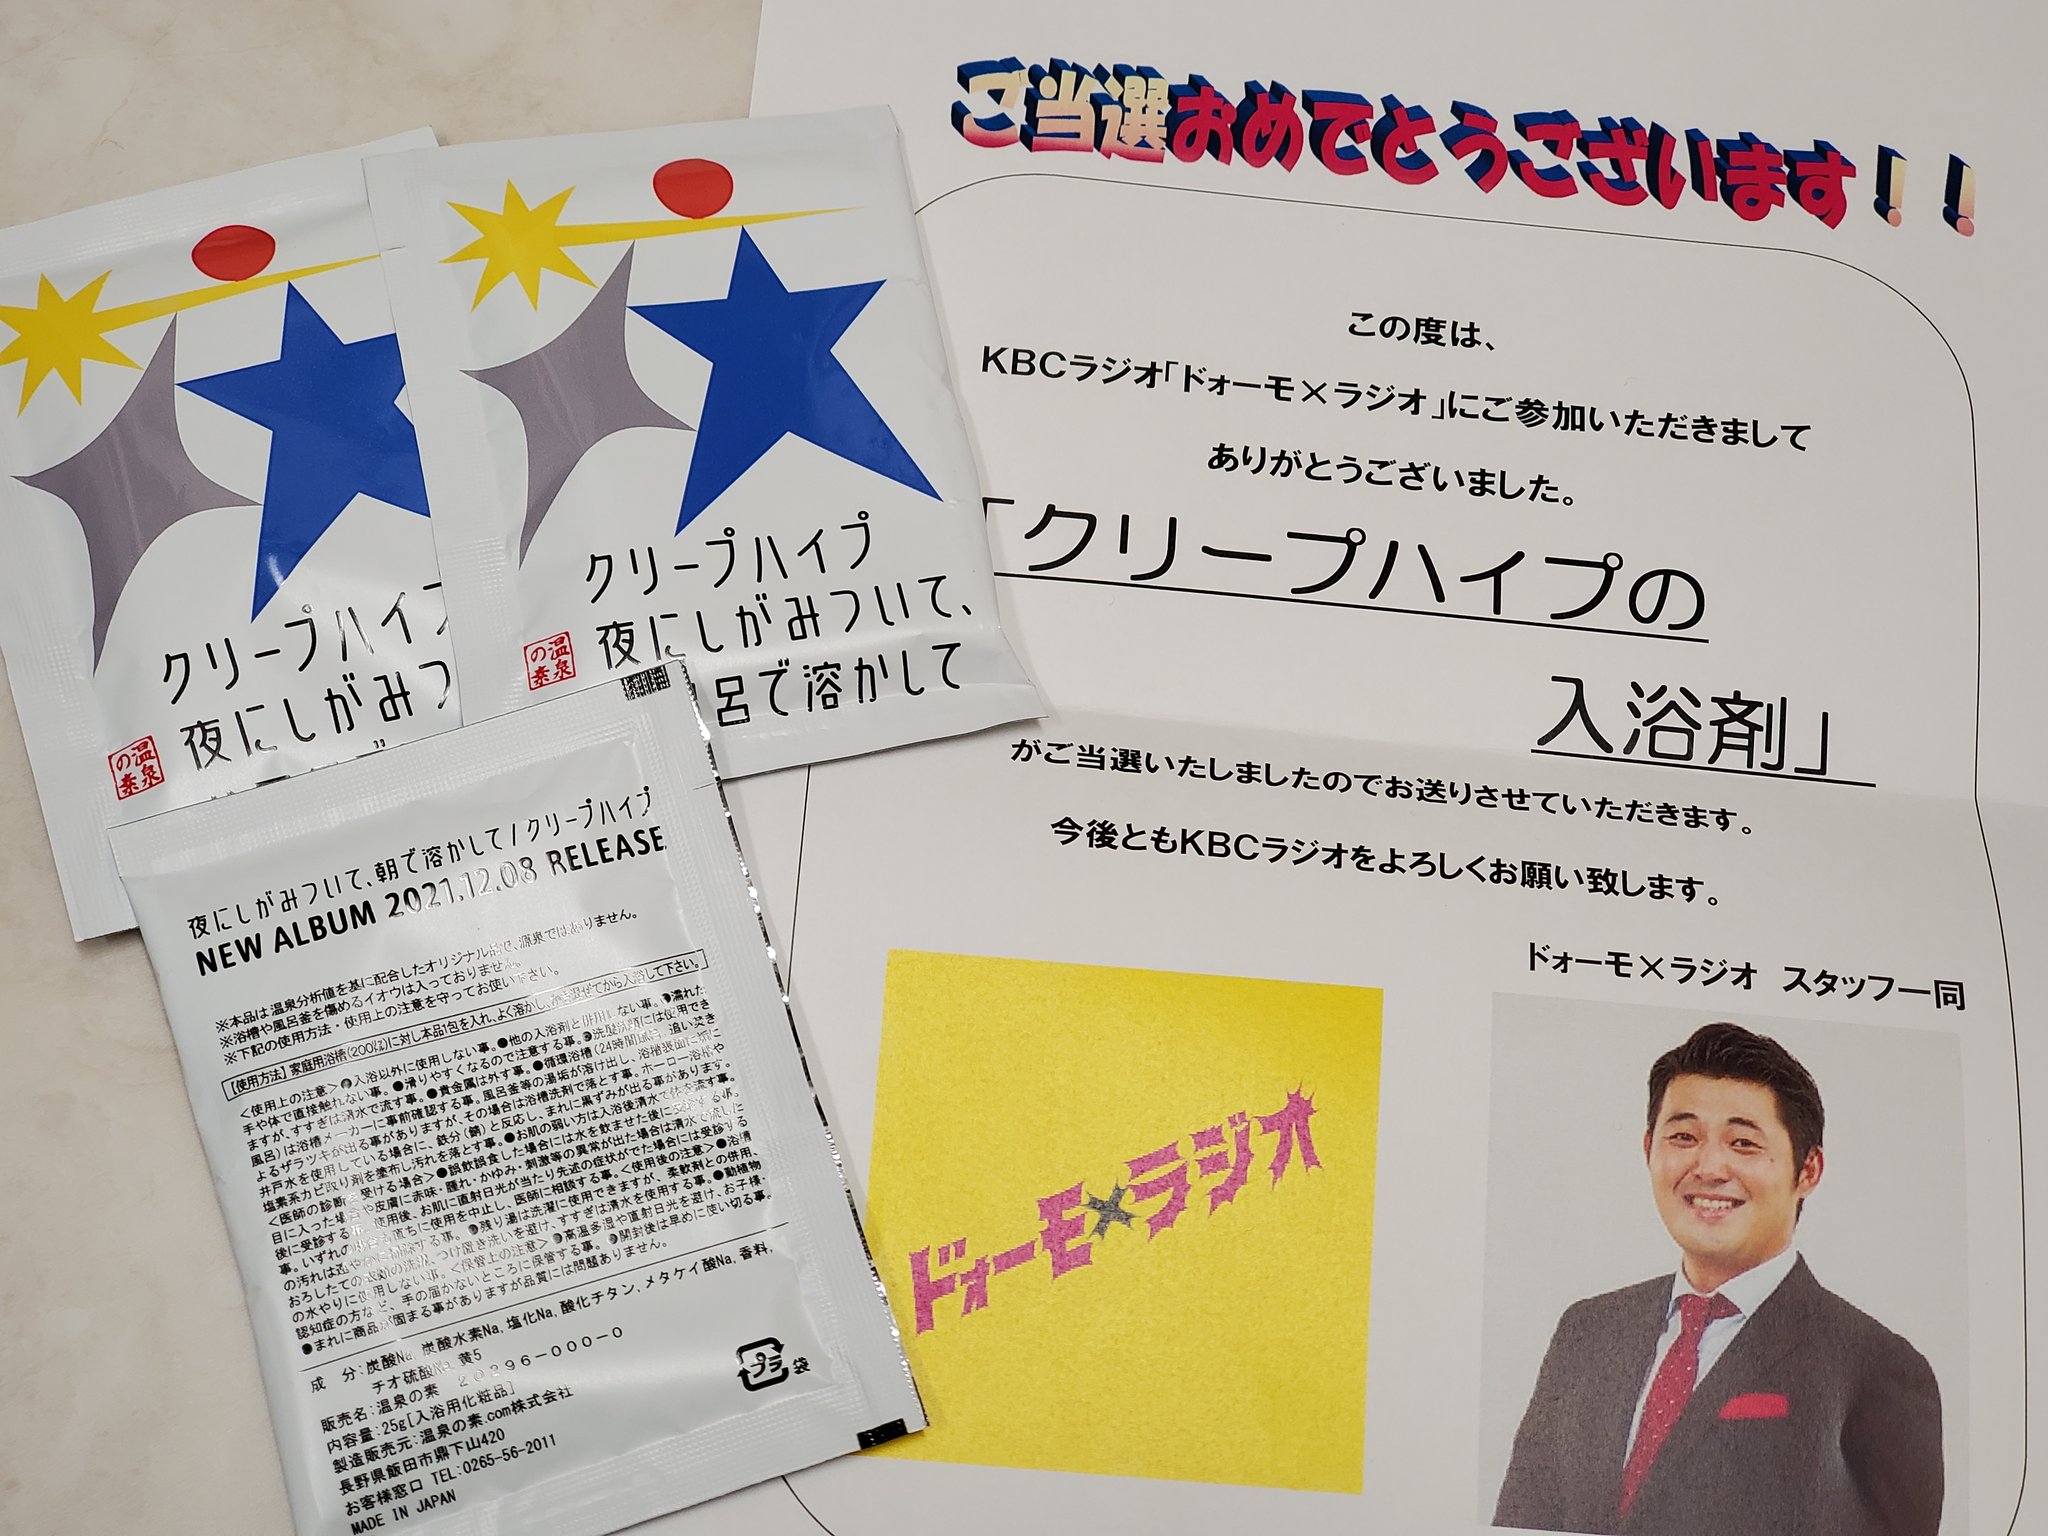 ご当選おめでとうございます！！
この度は、
KBCラジオ「ドォーモ×ラジオ」にご参加いただきまして
ありがとうございました。
「クリープハイプの
入浴剤」
がご当選いたしましたのでお送りさせていただきます。
今後ともKBCラジオをよろしくお願い致します。
ドォーモ×ラジオ　スタッフ一同
ドォーモ×ラジオ
クリープハイプ
夜にしがみついて、
呂で溶かして
温泉の素
クリープハイプ
夜にしがみつ
温泉の素
夜にしがみついて、朝で溶かして / クリープハイプ
NEW ALBUM 2021.12.08 RELEASE
※本品は温泉分析値を基に配合したオリジナル品で、源泉ではありません。
※浴槽や風呂釜を傷めるイオウは入っておりません。
※下記の使用方法・使用上の注意を守ってお使い下さい。
【使用方法】家庭用浴槽(200㍑)に対し本品1包を入れ、よく溶かし、かき混ぜてから入浴して下さい。
<使用上の注意>●入浴以外に使用しない事。●他の入浴剤と併用しない事。●濡れた
手や体で直接触れない事。●滑りやすくなるので注意する事。●洗髪洗顔には使用でき
ますが、すすぎは清水で流す事。●貴金属は外す事。●循環浴槽(24時間風呂、追い焚き
風呂)は浴槽メーカーに事前確認する事。風呂釜等の湯垢が溶け出し、浴槽表面に
よるザラツキが出る事がありますが、その場合は浴槽洗剤で落とす事。ホーロー浴槽や
井戸水を使用している場合に、鉄分(錆)と反応し、まれに黒ずみが出る事があります。
塩素系カビ取り剤を塗布し汚れを落とす事。●お肌の弱い方は入浴後清水で体を流す事。
<医師の診断を受ける場合>●誤飲誤食した場合には水を飲ませた後に受診する事。
目に入った場合や皮膚に赤味・腫れ・かゆみ・刺激等の異常が出た場合は清水で流し
後に受診する事。使用後、お肌に直射日光が当たり先述の症状がでた場合には受診する
事。いずれの場合も直ちに使用を中止し、医師に相談する事。<使用後の注意>●浴槽
の汚れは速やかに掃除する事。●残り湯は洗濯に使用できますが、柔軟剤との併用、
おろしたての衣類の洗濯、つけ置き洗いを避け、すすぎは清水を使用する事。●動植物
の水やりに使用しない事。<保管上の注意>●高温多湿や直射日光を避け、お子様・
認知症の方など、手の届かないところに保管する事。●開封後は早めに使い切る事。
●まれに商品が固まる事がありますが品質には問題ありません。
成　分：炭酸Na, 炭酸水素Na, 塩化Na, 酸化チタン, メタケイ酸Na, 香料,
チオ硫酸Na, 黄5
販売名：温泉の素　20296-000-0
内容量：25g[入浴用化粧品]
製造販売元：温泉の素.com株式会社
長野県飯田市鼎下山420
お客様窓口 TEL:0265-56-2011
MADE IN JAPAN
プラ 袋